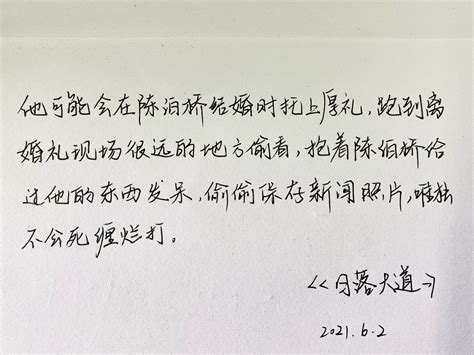 他可能会在陈泊桥结婚时托上厚礼,跑到离
婚礼现场很远的地方偷看,抱着陈泊桥给
过他的东西发呆,偷偷保存新闻照片,唯独
不会死缠烂打。
<<日落大道>>
2021.6.2